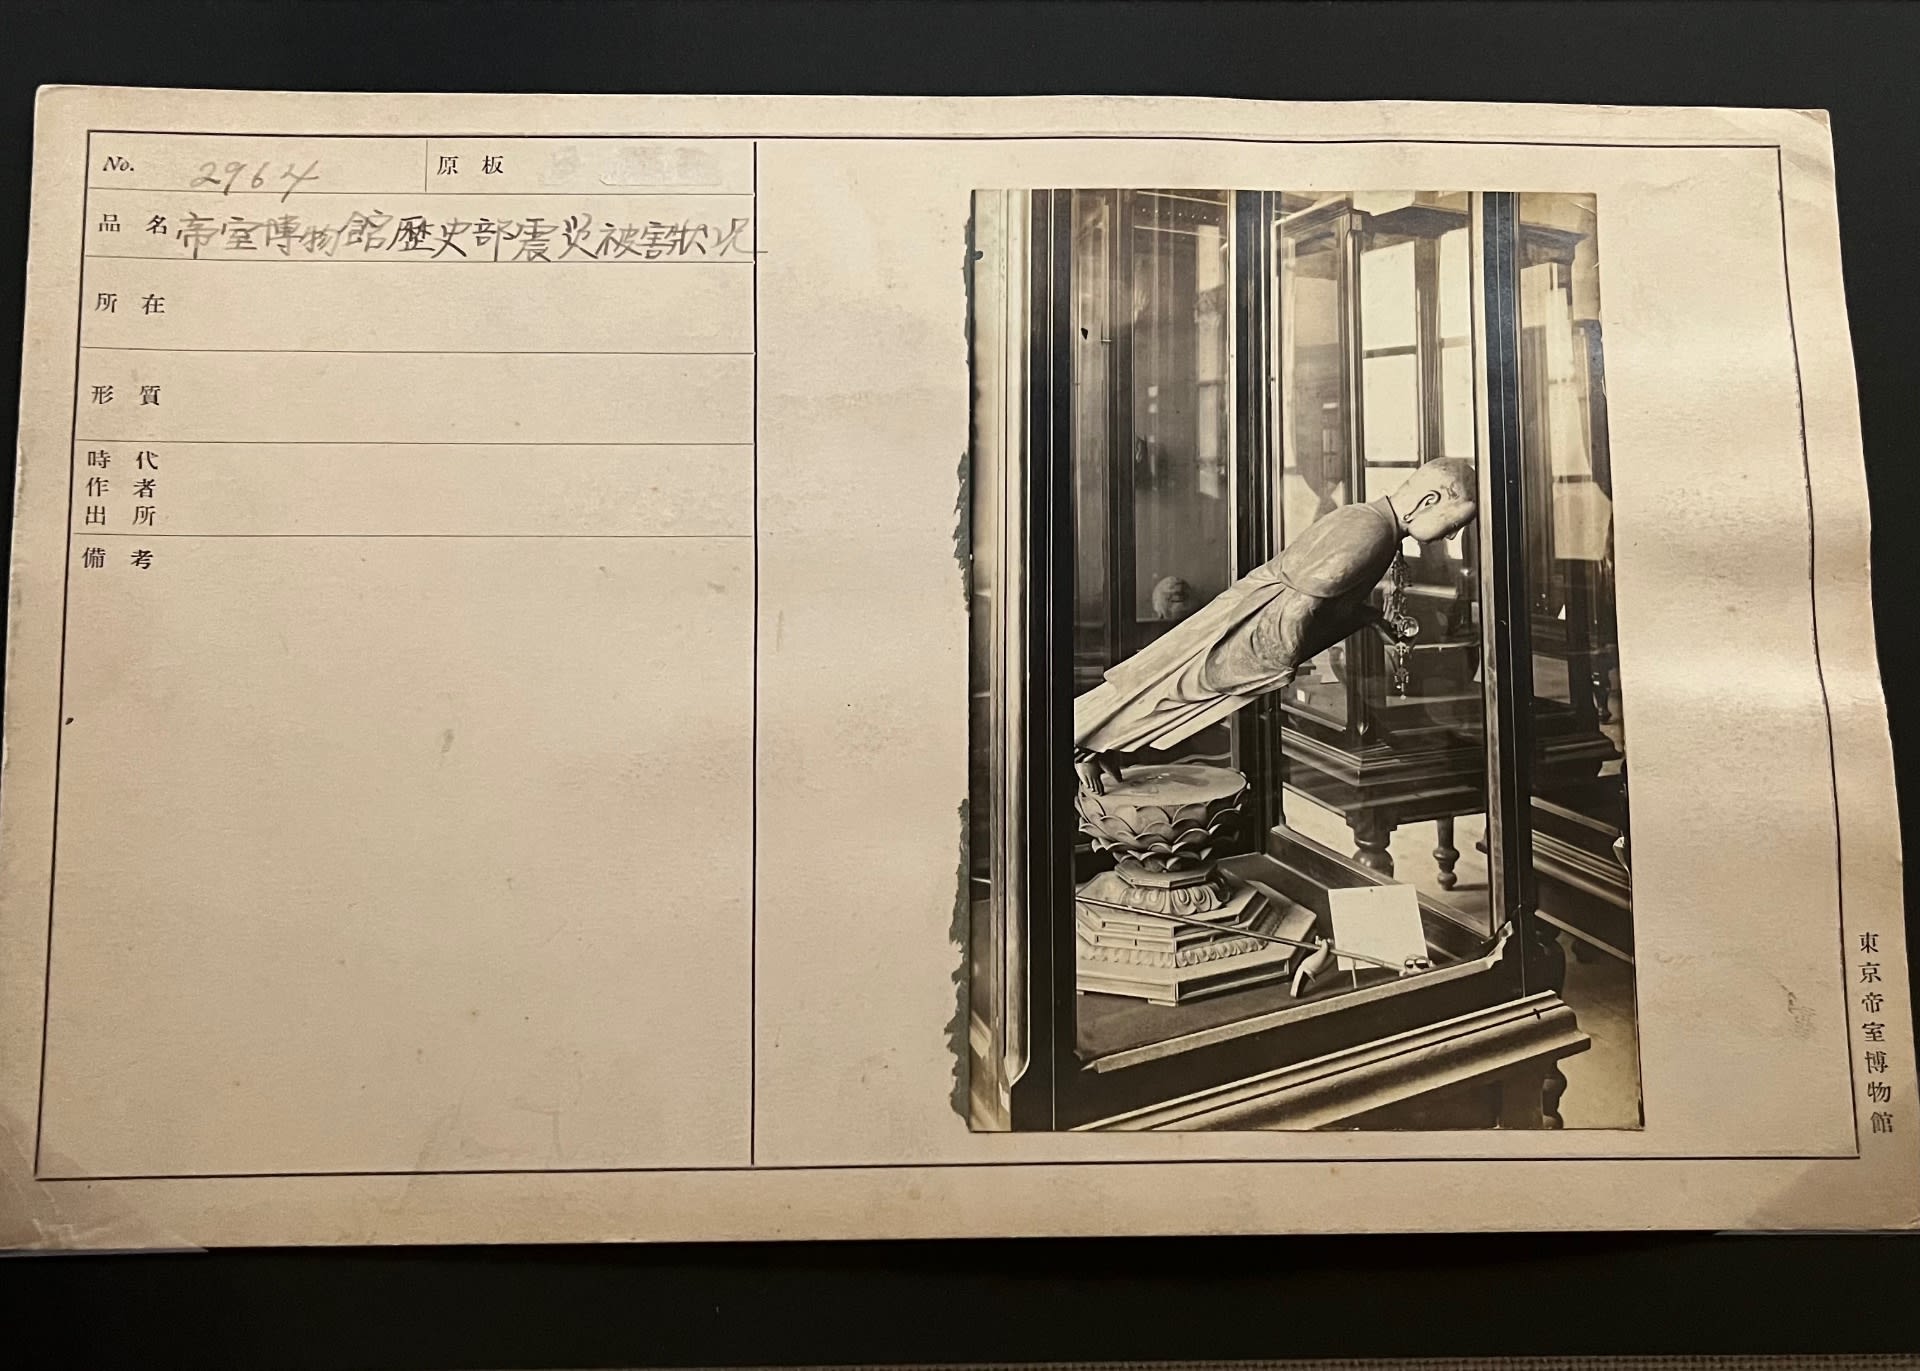 No. 2964 原板
品名 帝室博物館歴史部震災被害状況
所在
形質
時代
作者
出所
備考
東京帝室博物館